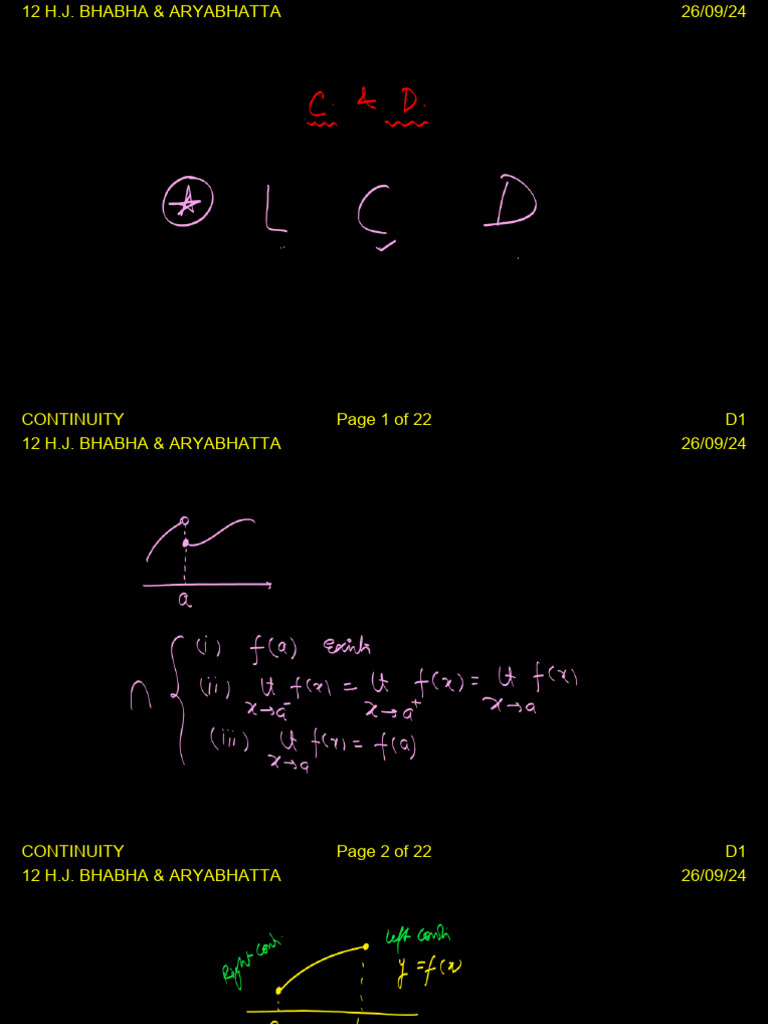 12 H.J. BHABHA & ARYABHATTA 26/09/24
C. & D.
L C D
CONTINUITY Page 1 of 22 D1
12 H.J. BHABHA & ARYABHATTA 26/09/24
a
(i) f(a) exists
∩ (ii) lt x→a⁻ f(x) = lt x→a⁺ f(x) = lt x→a f(x)
(iii) lt x→a f(x) = f(a)
CONTINUITY Page 2 of 22 D1
12 H.J. BHABHA & ARYABHATTA 26/09/24
Right conti left conti
y = f(x)